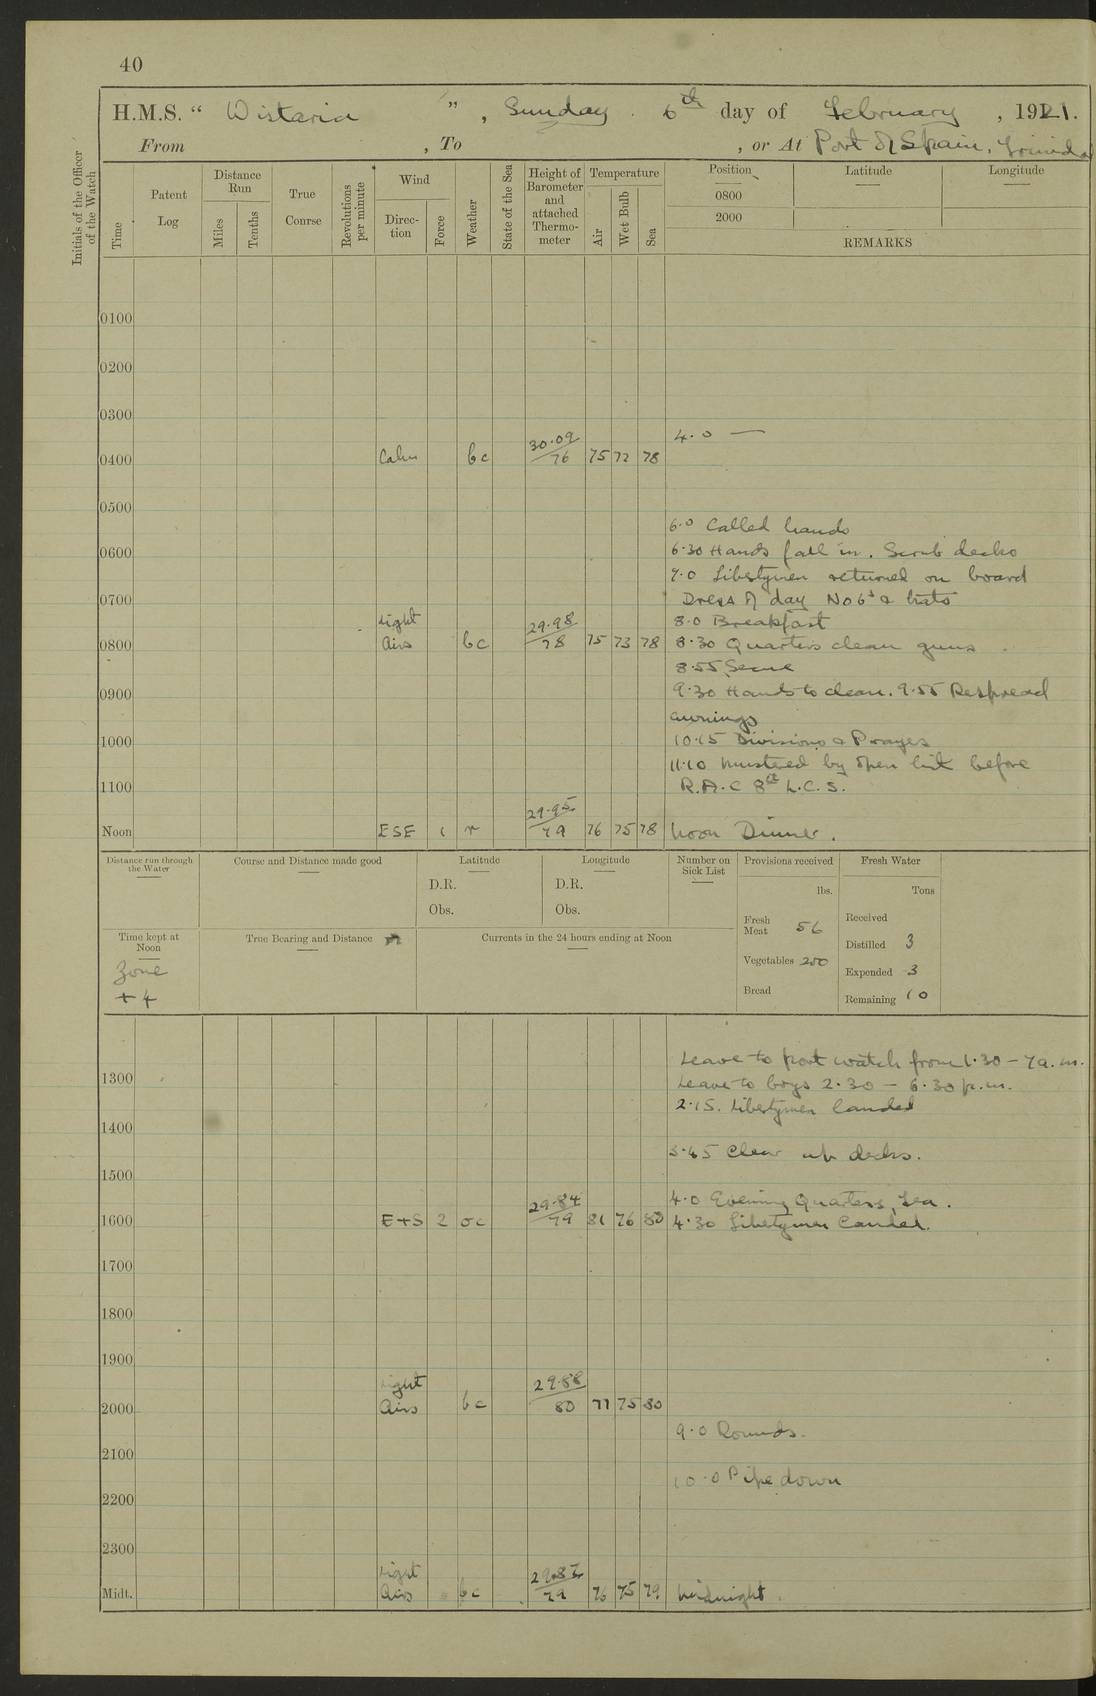 40
H.M.S. " Wistaria ", Sunday . 6th day of February, 1921.
From , To , or At Port of Spain, Trinidad
Initials of the Officer of the Watch
Time
Patent Log
Distance Run
Miles
Tenths
True Course
Revolutions per minute
Wind
Direc-tion
Force
Weather
State of the Sea
Height of Barometer and attached Thermo-meter
Temperature
Air
Wet Bulb
Sea
Position
0800
2000
Latitude
Longitude
REMARKS
0100
0200
0300
4.0 —
0400 Calm bc 30.09/76 75 72 78
0500
6.0 Called hands
0600 6.30 Hands fall in. Scrub decks
7.0 Libertymen returned on board
0700 Dress of day No 6s & hats
8.0 Breakfast
0800 Light Airs bc 29.98/78 75 73 78 8.30 Quarters clean guns
8.55 Secure
0900 9.30 Hands to clean. 9.55 Respread
awnings
1000 10.15 Divisions & Prayers
11.10 Mustered by open list before
1100 R.A.C 8th L.C.S.
Noon ESE 1 r 29.95/79 76 75 78 Noon Dinner.
Distance run through the Water
Course and Distance made good
Latitude
D.R.
Obs.
Longitude
D.R.
Obs.
Number on Sick List
Provisions received
lbs.
Fresh Meat 56
Vegetables 200
Bread
Fresh Water
Tons
Received
Distilled 3
Expended 3
Remaining 10
Time kept at Noon
Zone
+ 4
True Bearing and Distance
Currents in the 24 hours ending at Noon
Leave to port watch from 1.30 – 7 a.m.
1300 Leave to boys 2.30 – 6.30 p.m.
2.15. Libertymen landed
1400
3.45 Clear up decks.
1500
4.0 Evening Quarters, Tea.
1600 E+S 2 oc 29.84/79 81 76 80 4.30 Libertymen landed.
1700
1800
1900
2000 Light Airs bc 29.88/80 77 75 80
9.0 Rounds.
2100
10.0 Pipe down
2200
2300
Midt. Light Airs bc 29.87/79 76 75 79 Midnight.